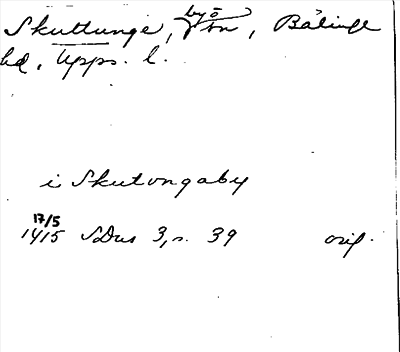 Skuttunge, byö sn, Bälinge
hd, Upps. l.
i Skutongaby
17/5
1415 SDns 3, s. 39 orig.